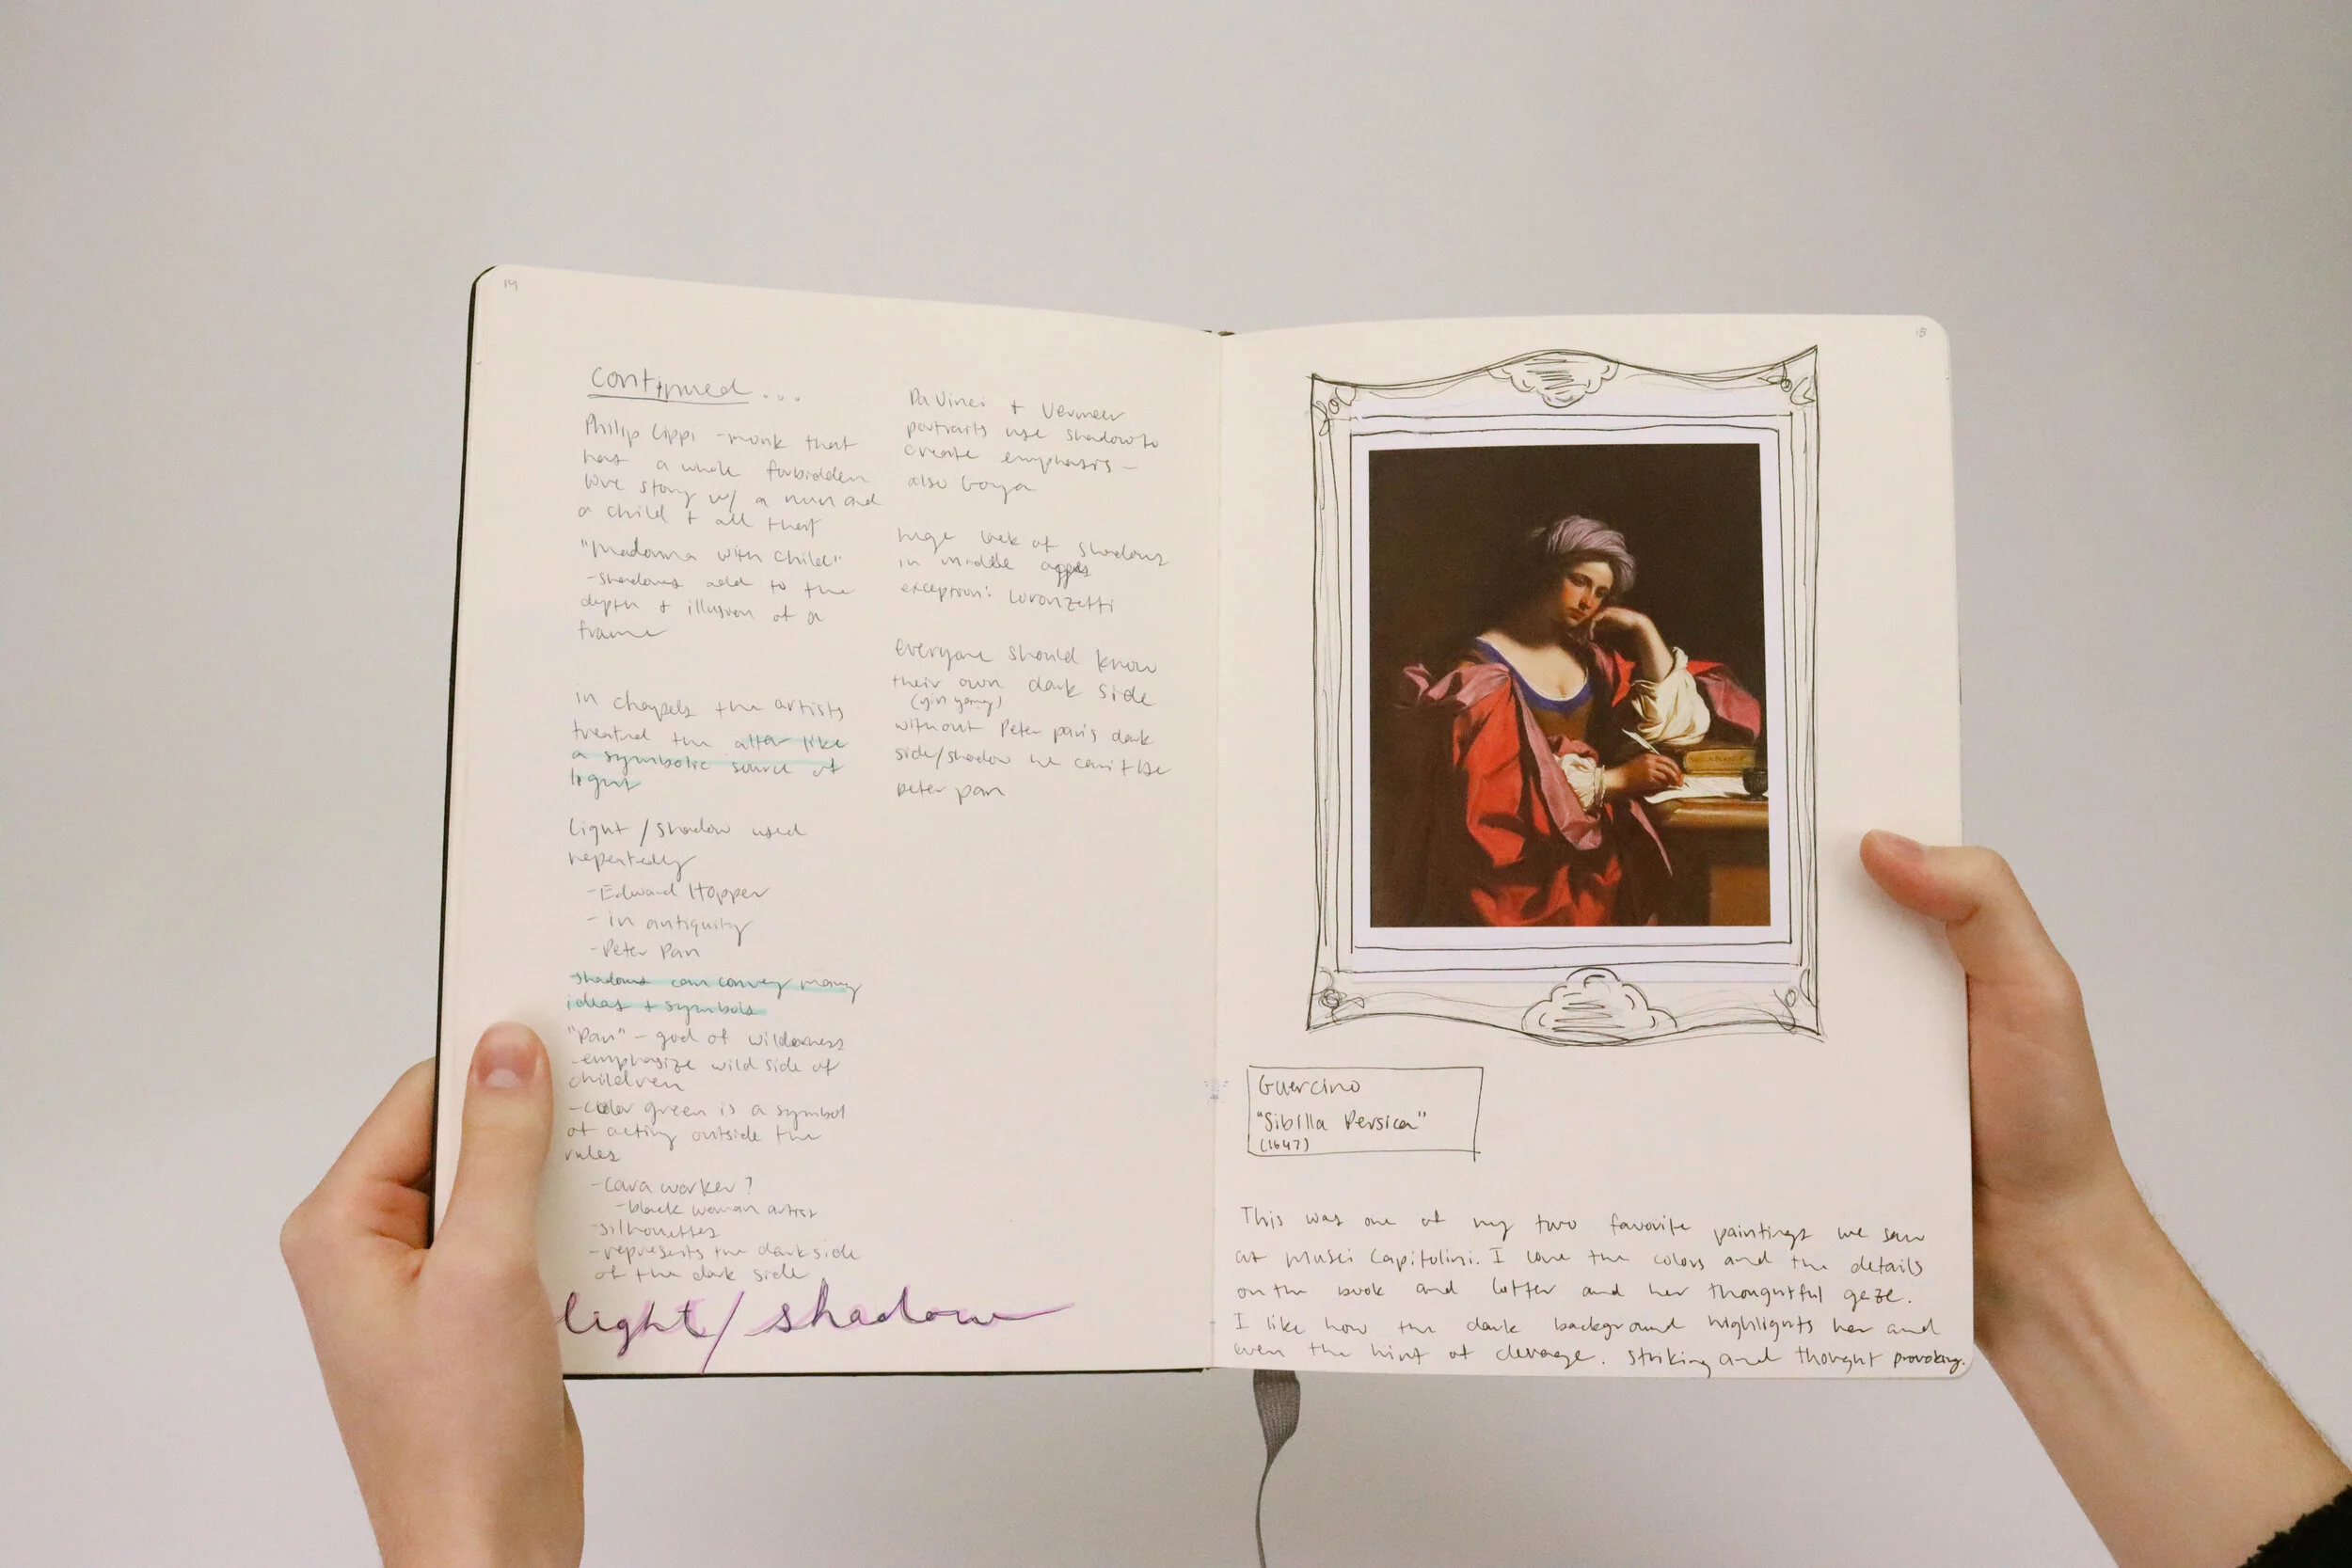 14
continued...
Philip Lippi - monk that
has a whole forbidden
love story w/ a nun and
a child + all that
"Madonna with Child"
- shadows add to the
depth + illusion of a
frame
in chapels the artists
treated the alter like
a symbolic source of
light
light / shadow used
repeatedly
- Edward Hopper
- in antiquity
- Peter Pan
shadows can convey many
ideas + symbols
"Pan" - god of wilderness
- emphasize wild side of
children
- color green is a symbol
of acting outside the
rules
- Cara worker?
- black woman artist
- silhouettes
- represents the dark side
of the dark side
light/shadow
Da Vinci + Vermeer
portraits use shadow to
create emphasis -
also Goya
huge lack of shadows
in middle ages
exception: Loronzetti
everyone should know
their own dark side
(yin yang)
without Peter pan's dark
side/shadow he can't be
peter pan
15
Guercino
"Sibilla Persica"
(1647)
This was one of my two favorite paintings we saw
at Musei Capitolini. I love the colors and the details
on the book and letter and her thoughtful gaze.
I like how the dark background highlights her and
even the hint of clevage. Striking and thought provoking.